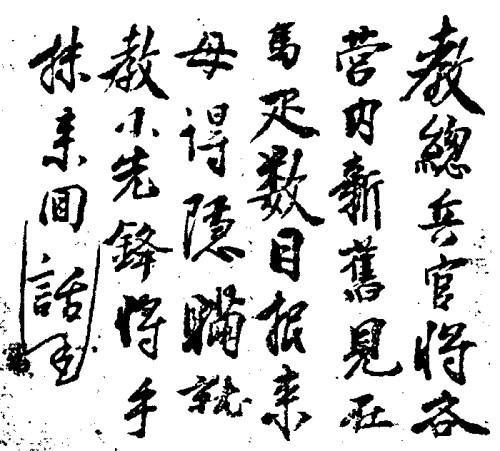 教總兵官將各
營内新舊見在
馬疋数目报来
毋得隱瞞就
教小先鋒將手
抹来回
話